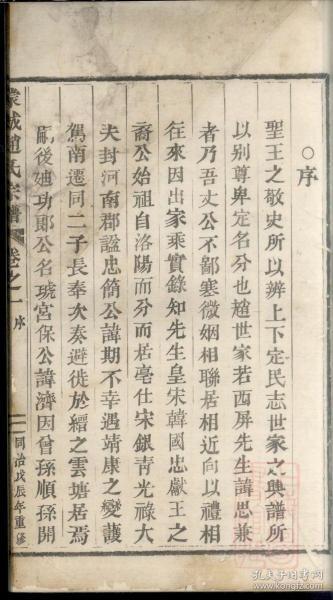 ○序
聖王之敬史所以辨上下定民志世家之興譜所
以别尊卑定名分也趙世家若西屏先生諱思兼
者乃吾丈公不鄙寒微姻相聯居相近向以禮相
往來因出家乘實錄知先生皇宋韓國忠獻王之
裔公始祖自洛陽而分而居亳仕宋銀青光祿大
夫封河南郡諡忠簡公諱期不幸遇靖康之變護
駕南遷同二子長奉次奏避徙於縉之雲塘居焉
嗣後廸功郎公名琥宮保公諱濟因曾孫順孫開
蒙城趙氏宗譜
卷之一
序
同治戊辰年重修